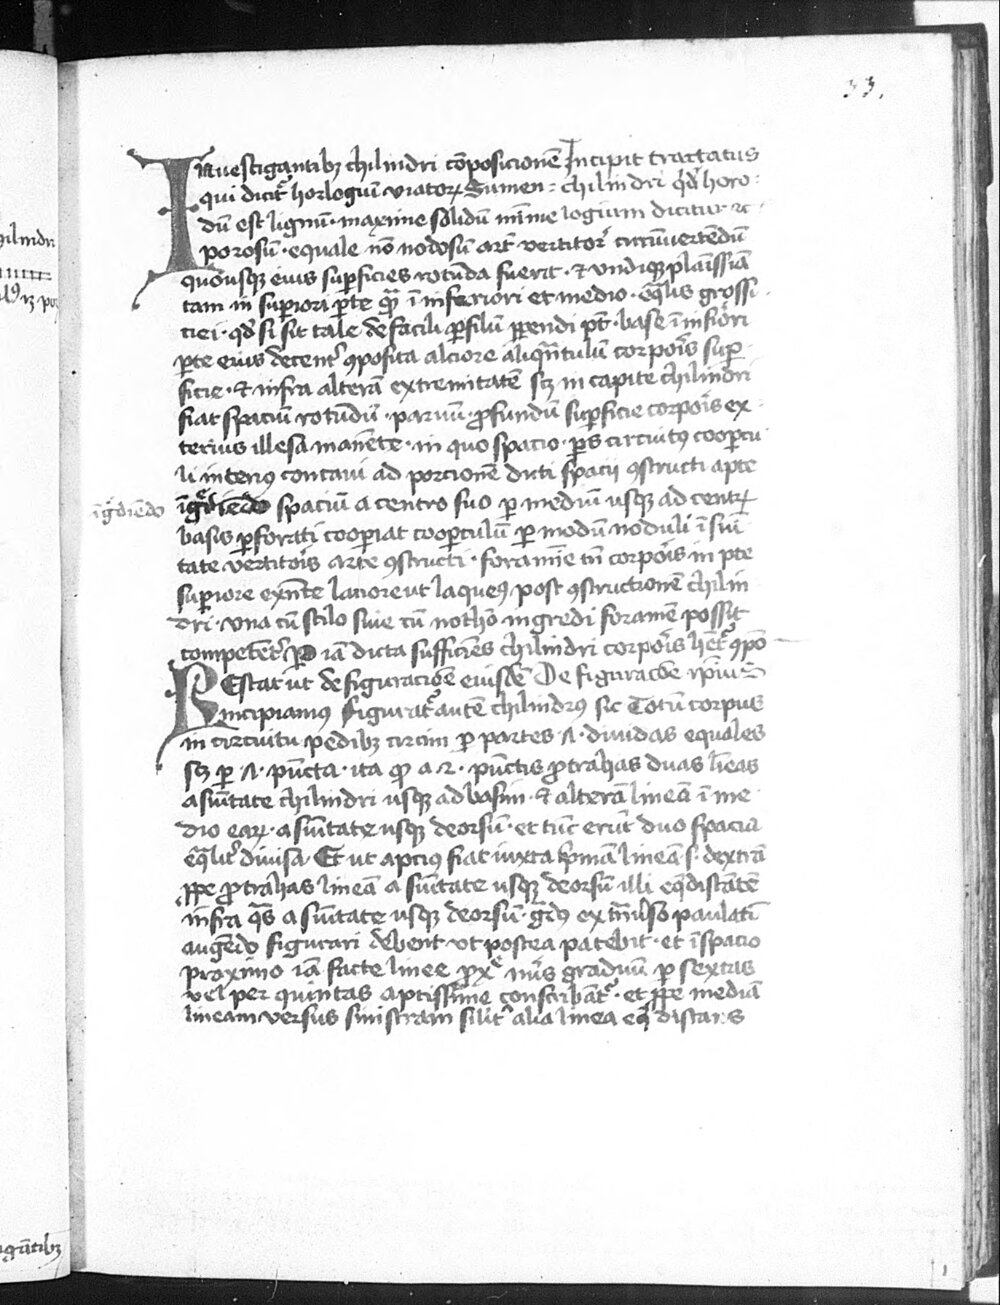 33.
Inuestigantibꝫ chilindri cōposicionē Incipit tractatus
qui dicit᷑ horlogiū viatoꝝ Sumen= chilindri qd̄ horo=
dū est lignū · maxime solidū mīme logium dicitur ⁊c
porosū · equale nō nodosū art᷑ vertitor᷑ circūuertēdū
quousqꝫ eius suꝑficies rotūda fuerit · ⁊ vndiqꝫ planissīa
tam in suꝑiori ꝑte qᷓꝫ ī inferiori et medio · eq̄lis grossi
ciei · qd̄ si sit tale de facili ꝑ filū ꝑpendi pt̄ · base ī infīori
ꝑte eius decent᷑ ꝯposita alciore aliqᷓntulū corpor̄is suꝑ
ficie · ⁊ infra alterā extremitatē sꝫ in capite chilindri
fiat spaciū rotūdū · paruū · ꝓfundū suꝑficie corpor̄is ex
terius illesa manēte · in quo spacio · ꝑs circuitꝰ cooꝑcu
li interiꝰ concaui ad porcionē dicti spacii ꝯstructi apte
īgᷓdiēdo
īgᷓdiēdo spaciū a centro suo ꝑ mediū usqꝫ ad centꝝ
basis ꝑforati cooꝑiat cooꝑculū ꝑ modū noduli ī sūi
tate vertitor̄is arte ꝯstructi · foramīe tn̄ corpor̄is in ꝑte
suꝑiore exn̄te laciore ut laqueꝰ post ꝯstructionē chilin
dri · vna cū stilo siue cū notho ingredi foramē possit
competent᷑ iā dicta sufficiēs chilindri corpor̄is hēt᷑ ꝯpō
REstat ut de figuracōe eiusdē De figuracōe ip̄ius
incipiamus figurat᷑ autē chilindrꝰ sic Totū corpus
in circuitu pedibꝫ circini ꝑ partes · diuidas equales
sꝫ ꝑ · pūcta · ita ꝙ a 2 · pūctis ꝓtrahas duas līeas
a sūitate chilindri usqꝫ ad basim · ⁊ alterā lineā ī me
dio eaꝝ · a sūitate usqꝫ deorsū · et tūc erūt duo spacia
eq̄lit᷑ diuisa · Et ut apciꝰ fiat iuxta p̄mā lineā · s · dextrā
ꝓpe ꝓtrahas lineā a sūitate usqꝫ deorsū illi eq̄distātē
infra qᷓs a sūitate usqꝫ deorsū · gᷓdꝰ ex tn̄suerso paulatī
augēdo figurari debent vt postea patebit · et ī spacio
proximo iā facte linee ꝓxᵉ nūs graduū ꝑ sextas
vel per quintas aptissime conscribātur · et ꝓpe mediā
lineam versus sinistram silit᷑ alia linea eq̄ distans